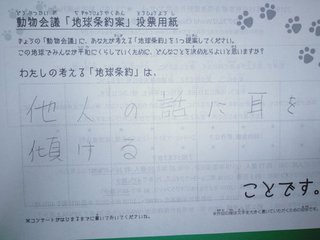 動物会議「地球条約案」投票用紙
きょうの「動物会議」に、あなたが考える「地球条約」を1つ提案してください。
この地球でみんなが平和にくらしていくために、どんなことを決めたらよいと思いますか?
わたしの考える「地球条約」は、
他人の話に耳を
傾ける
ことです。
※コンサートがはじまるまでに書いておいてくださいね。